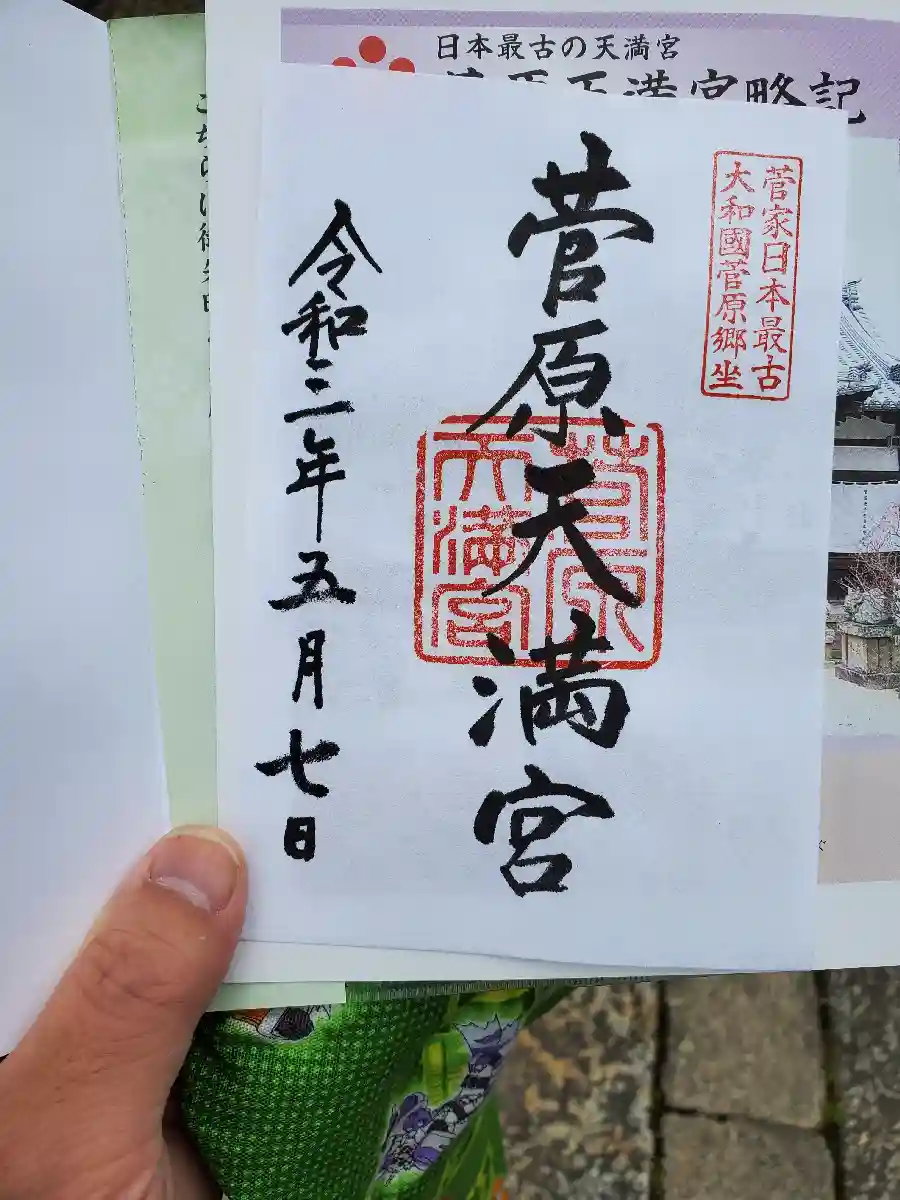 日本最古の天満宮
天満宮略記
菅家日本最古
大和國菅原郷坐
菅原天満宮
菅原
天満宮
令和三年五月七日